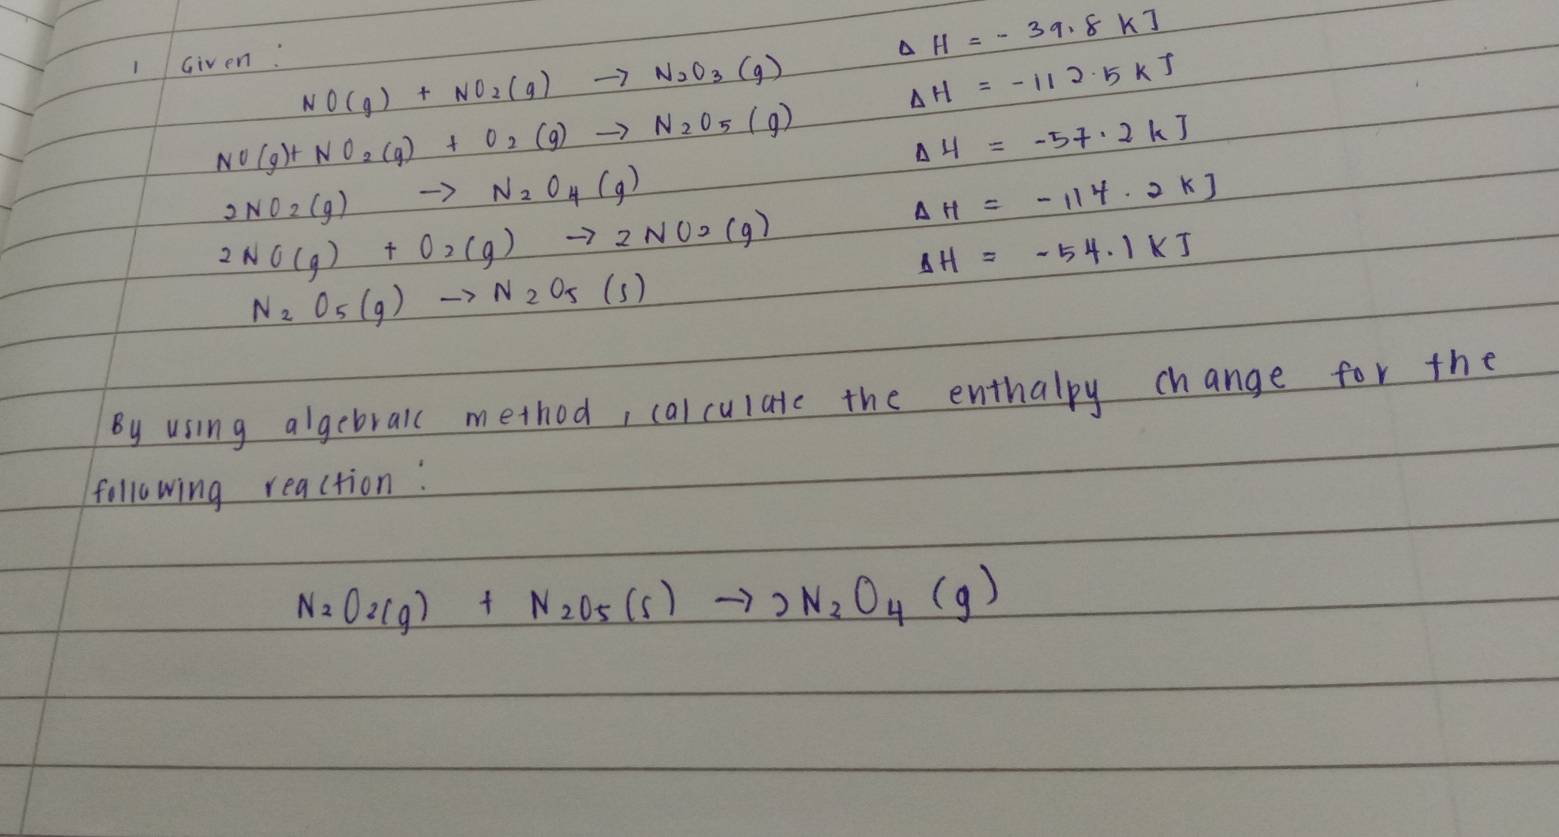 1 Given :
NO(g) + NO2(g) → N2O3(g) ΔH = - 39.8 kJ
NO(g)+ NO2(g) + O2(g) → N2O5(g) ΔH = -112.5 kJ
2NO2(g) → N2O4(g) ΔH = -57.2 kJ
2NO(g) + O2(g) → 2NO2(g) ΔH = -114.2 kJ
N2O5(g) → N2O5(s) ΔH = -54.1 kJ
By using algebraic method, calculate the enthalpy change for the
following reaction :
N2O2(g) + N2O5(s) → 2N2O4(g)